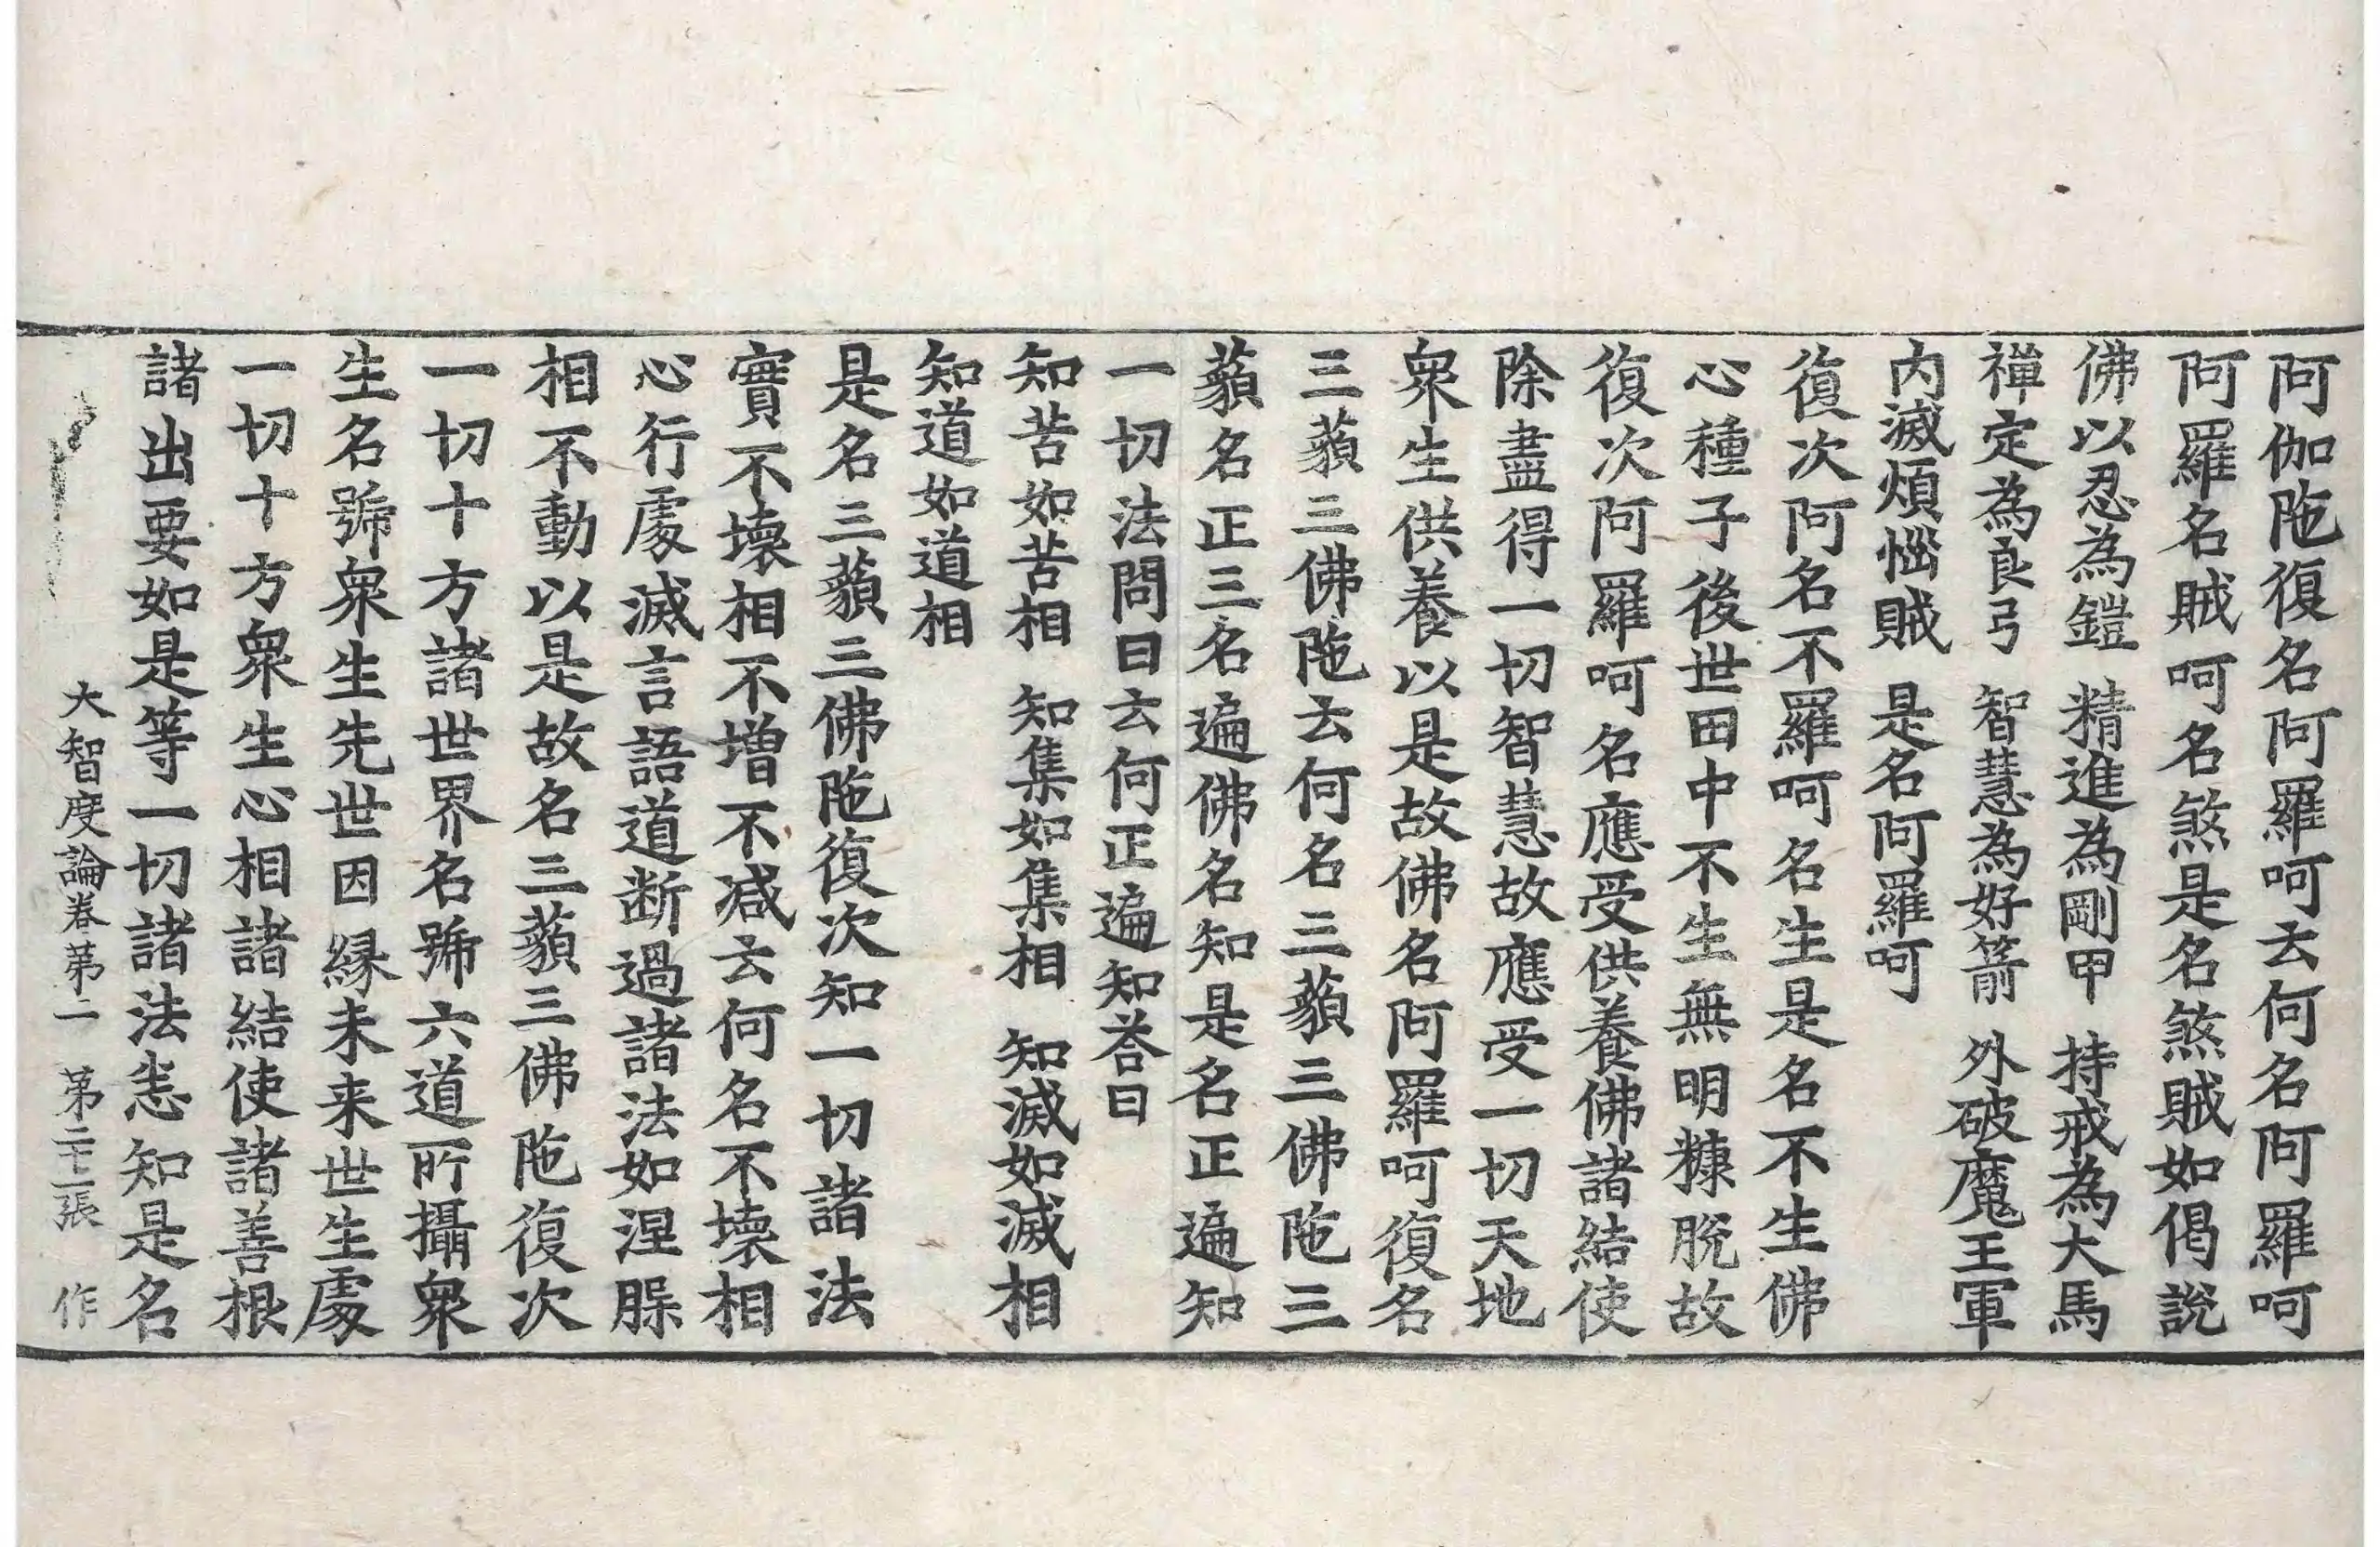 阿伽陁復名阿羅呵云何名阿羅呵
阿羅名賊呵名煞是名煞賊如偈說
佛以忍為鎧　精進為剛甲　持戒為大馬
禪定為良弓　智慧為好箭　外破魔王軍
內滅煩惱賊　是名阿羅呵
復次阿名不羅呵名生是名不生佛
心種子後世田中不生無明糠脫故
復次阿羅呵名應受供養佛諸結使
除盡得一切智慧故應受一切天地
衆生供養以是故佛名阿羅呵復名
三藐三佛陁云何名三藐三佛陁三
藐名正三名遍佛名知是名正遍知
一切法問曰云何正遍知荅曰
知苦如苦相　知集如集相　知滅如滅相
知道如道相
是名三藐三佛陁復次知一切諸法
實不壞相不增不减云何名不壞相
心行處滅言語道断過諸法如涅槃
相不動以是故名三藐三佛陁復次
一切十方諸世界名號六道所攝衆
生名號衆生先世因緣未来世生處
一切十方衆生心相諸結使諸善根
諸出要如是等一切諸法悉知是名
大智度論卷第二　第二十二張　作